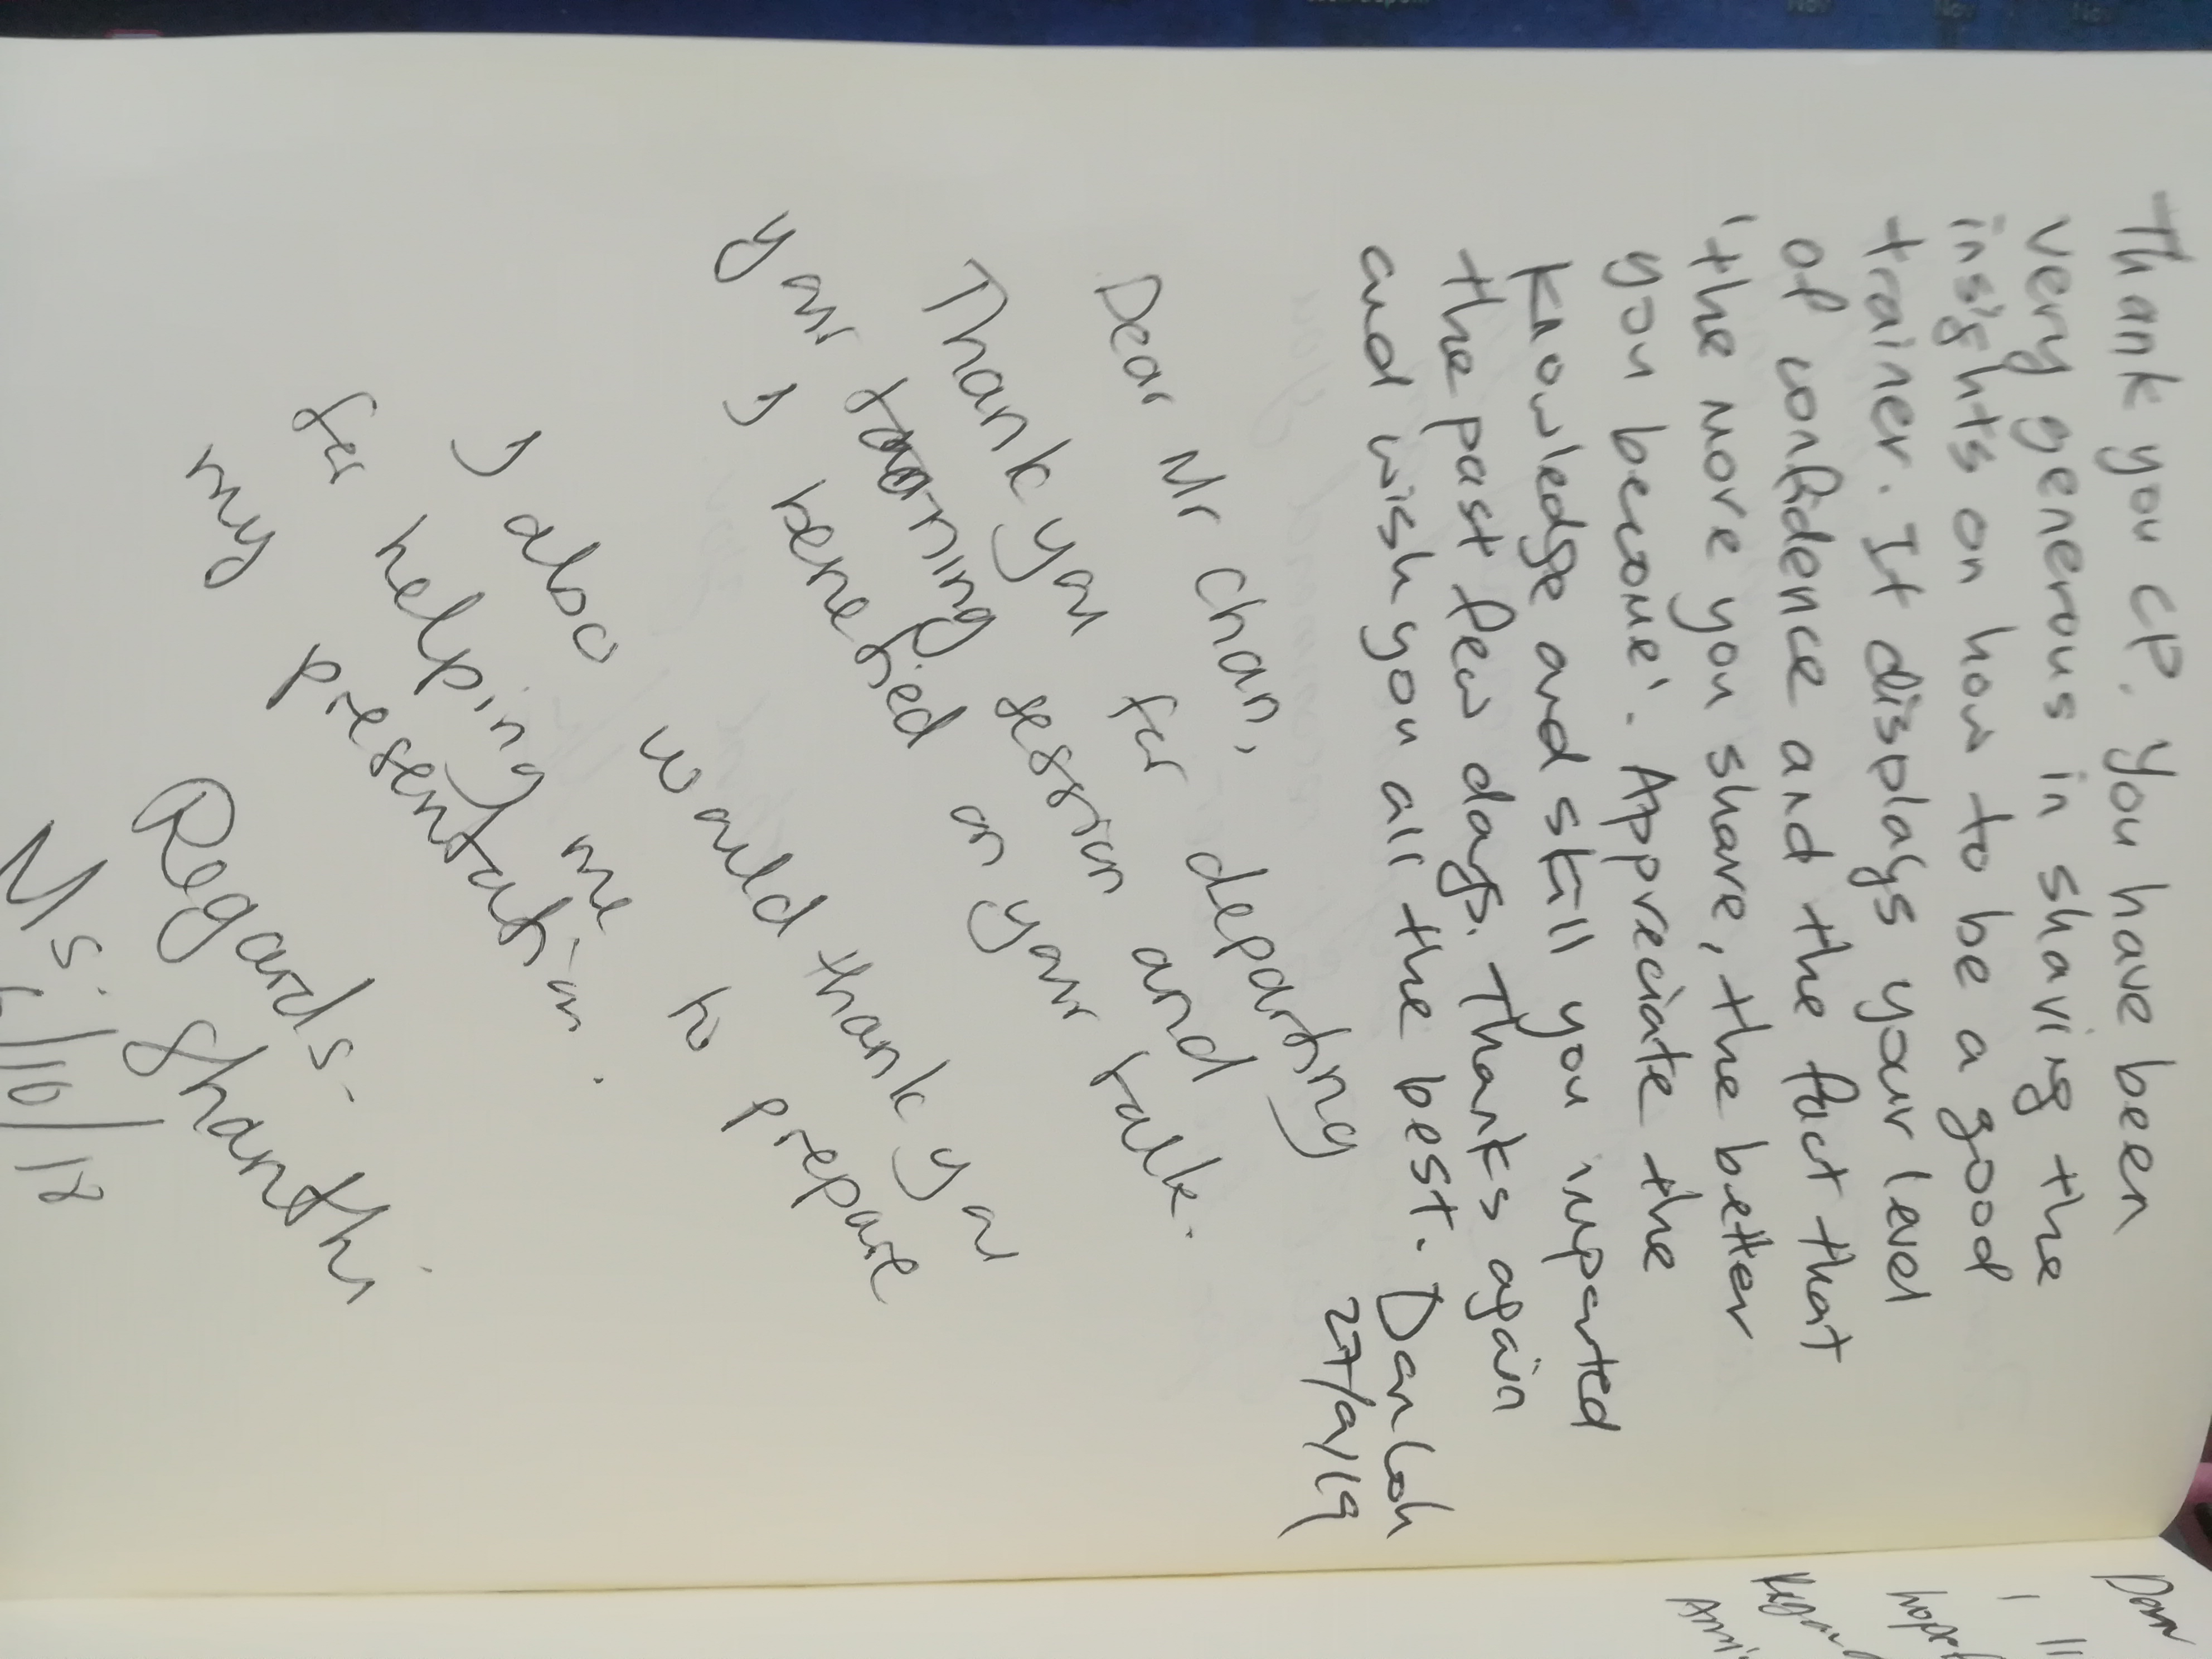 Thank you CP. You have been
very generous in sharing the
insights on how to be a good
trainer. It displays your level
of confidence and the fact that
'the more you share, the better
you become'. Appreciate the
knowledge and skill you imparted
the past few days. Thanks again
and wish you all the best. Dan Loh
27/9/19
Dear Mr Chan,
Thank you for departing
your training session and
I benefied on your talk.
I also would thank you
for helping me to prepare
my presentation.
Regards-
Ms. Shanthi
/10/18
Dear
I